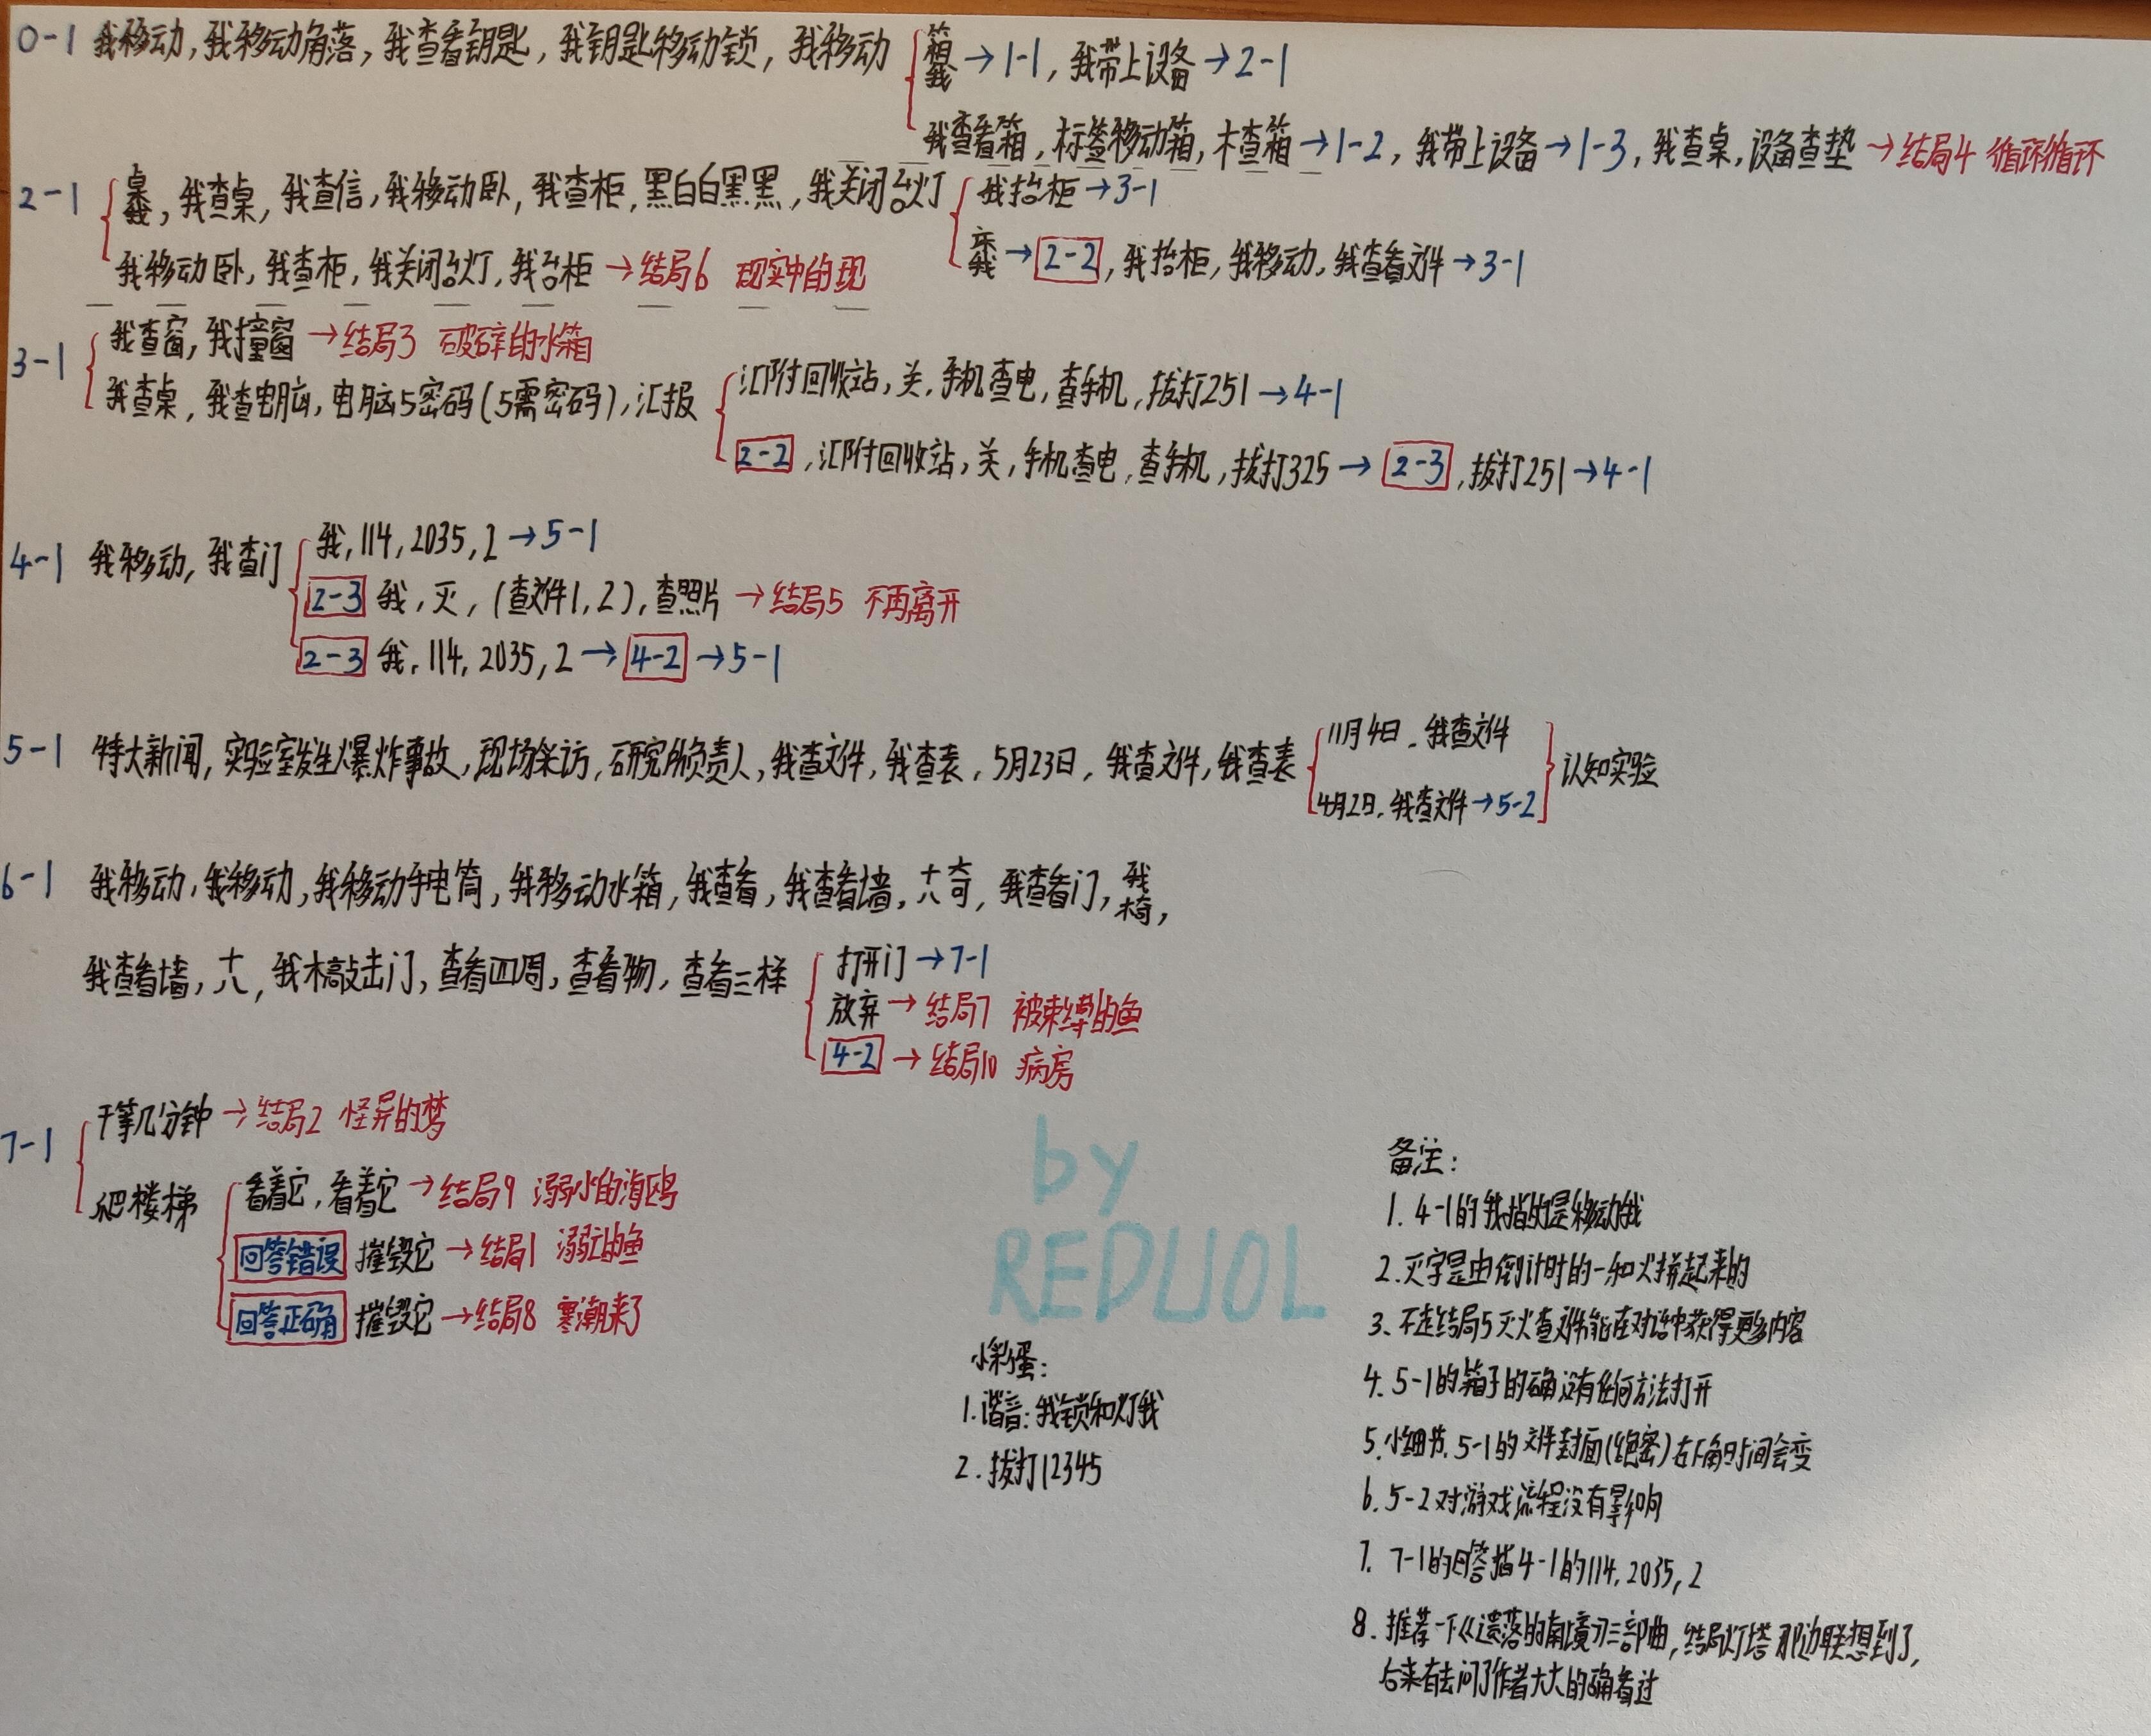 0-1 我移动,我移动角落,我查看钥匙,我钥匙移动锁,我移动
箱
我 →1-1,我带上设备→2-1
我查看箱,标签移动箱,木查箱→1-2,我带上设备→1-3,我查桌,设备查垫→结局4 循环循环
2-1
桌
我,我查桌,我查信,我移动卧,我查柜,黑白白黑黑,我关闭台灯
我抬柜→3-1
我→2-2,我抬柜,我移动,我查看文件→3-1
我移动卧,我查柜,我关闭台灯,我台柜→结局6 现实中的现
3-1
我查窗,我撞窗→结局3 破碎的水箱
我查桌,我查电脑,电脑5密码(5需密码),汇报
汇附回收站,关,手机查电,查手机,拔打251→4-1
2-2,汇附回收站,关,手机查电,查手机,拔打325→2-3,拔打251→4-1
4-1 我移动,我查门
我,114,2035,2→5-1
2-3 我,灭,(查文件1,2),查照片→结局5 不再离开
2-3 我,114,2035,2→4-2→5-1
5-1 特大新闻,实验室发生爆炸事故,现场采访,研究所负责人,我查文件,我查表,5月23日,我查文件,我查表
11月4日.我查文件
4月2日.我查文件→5-2
认知实验
6-1 我移动,我移动,我移动手电筒,我移动水箱,我查看,我查看墙,十八奇,我查看门,我椅,
我查看墙,十八,我木敲击门,查看四周,查看物,查看三样
打开门→7-1
放弃→结局7 被束缚的鱼
4-2→结局10 病房
7-1
干等几分钟→结局2 怪异的梦
爬楼梯
看着它,看着它→结局9 溺水的海鸥
回答错误 摧毁它→结局1 溺亡的鱼
回答正确 摧毁它→结局8 寒潮来了
by
REDUOL
小彩蛋:
1.谐音:我锁和灯我
2.拔打12345
备注:
1.4-1的我指的是移动我
2.灭字是由倒计时的一和火拼起来的
3、不走结局5灭火查文件能在对话中获得更多内容
4.5-1的箱子的确没有任何方法打开
5.小细节.5-1的文件封面(绝密)右下角时间会变
6.5-2对游戏流程没有影响
7.7-1的回答指4-1的114,2035,2
8.推荐一下《遗落的南境》三部曲,结局灯塔那边联想到了,
后来有去问了作者大大的确看过